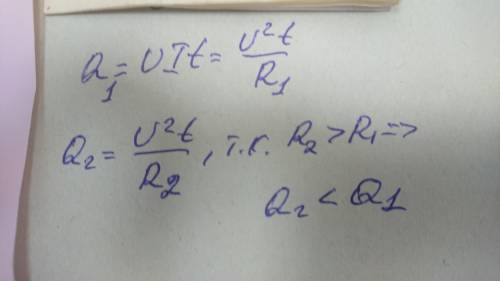 Q₁ = UIt = U²t / R₁
Q₂ = U²t / R₂ , т.к. R₂ > R₁ =>
Q₂ < Q₁